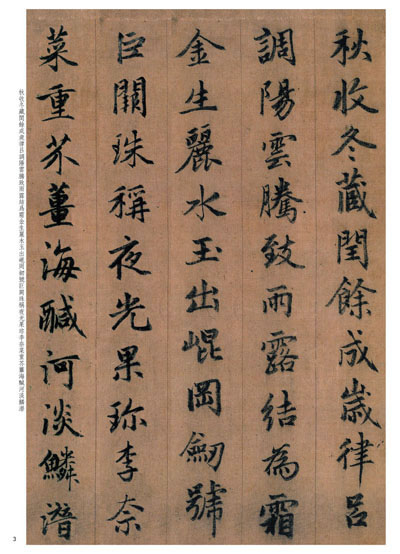 秋收冬藏閏餘成歲律呂
調陽雲騰致雨露結為霜
金生麗水玉出崐岡劒號
巨闕珠稱夜光果珍李奈
菜重芥薑海鹹河淡鱗潛
秋收冬藏閏餘成歲律吕調陽雲騰致雨露結爲霜金生麗水玉出崐岡劍號巨闕珠稱夜光果珍李奈菜重芥薑海鹹河淡鱗潛
3